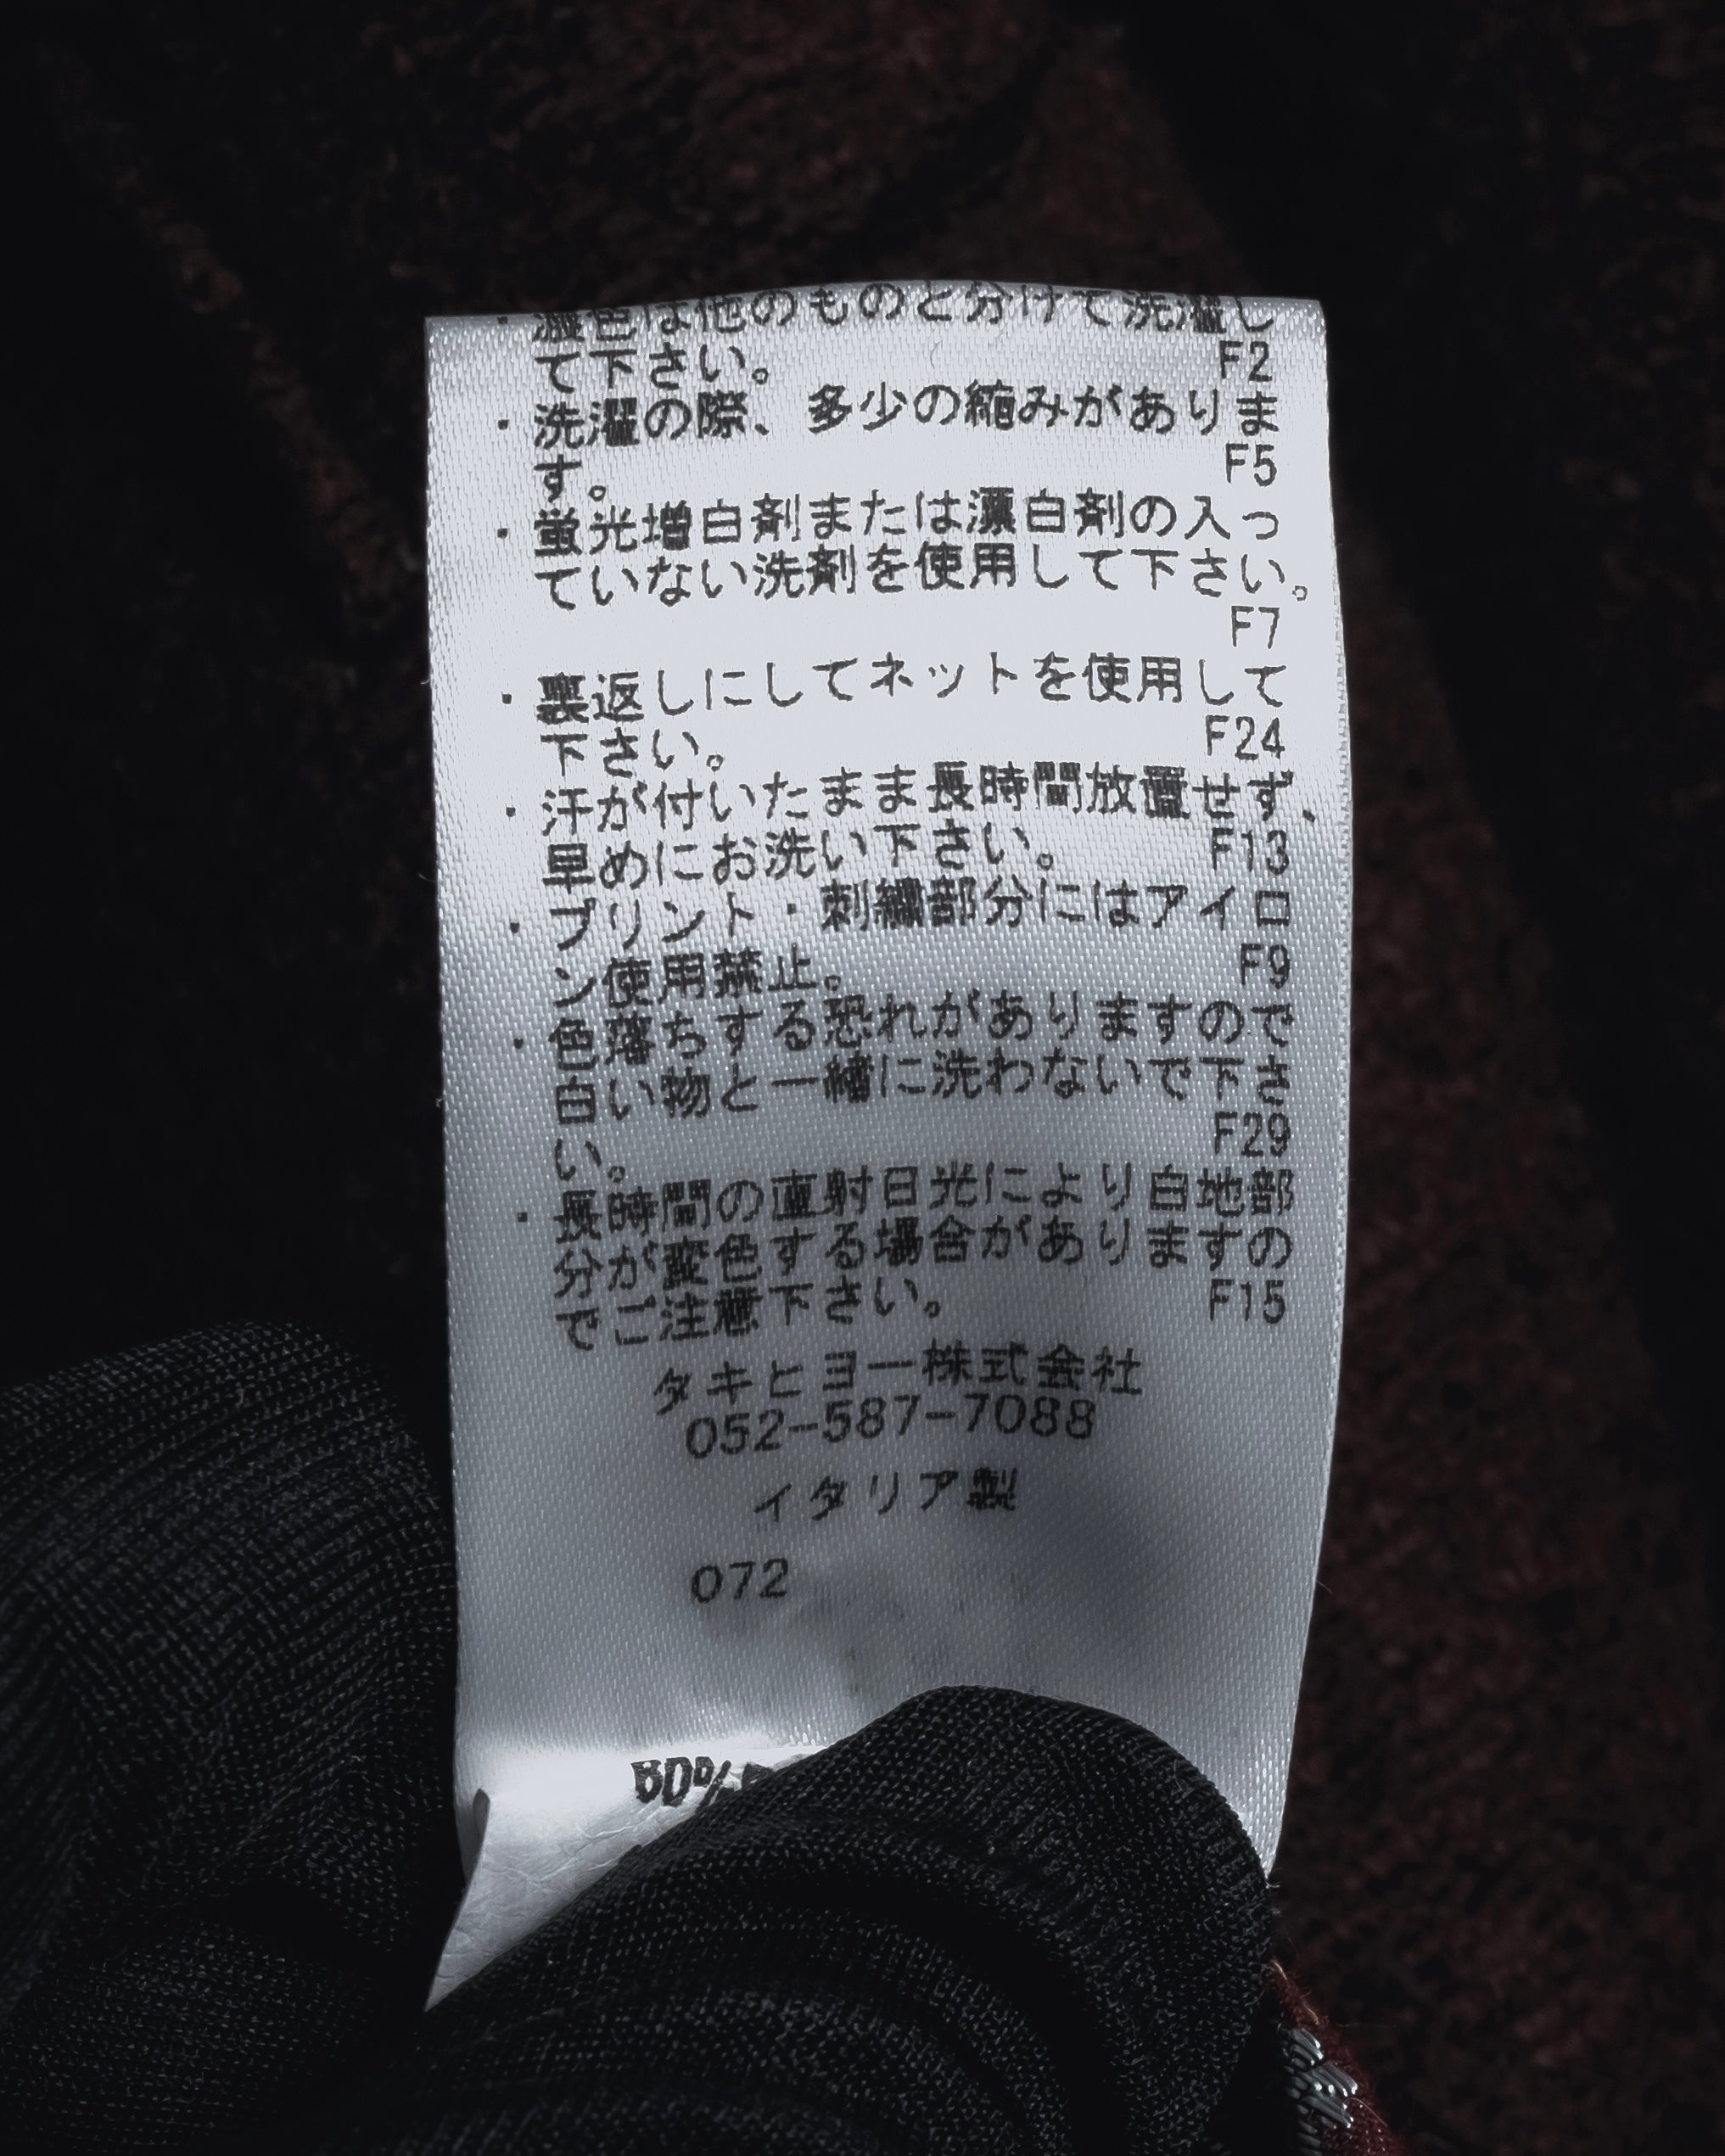 ・濃色は他のものと分けて洗濯し
て下さい。 F2
・洗濯の際、多少の縮みがありま
す。 F5
・蛍光増白剤または漂白剤の入っ
ていない洗剤を使用して下さい。
F7
・裏返しにしてネットを使用して
下さい。 F24
・汗が付いたまま長時間放置せず、
早めにお洗い下さい。 F13
・プリント・刺繍部分にはアイロ
ン使用禁止。 F9
・色落ちする恐れがありますので
白い物と一緒に洗わないで下さ
い。 F29
・長時間の直射日光により白地部
分が変色する場合がありますの
でご注意下さい。 F15
タキヒヨー株式会社
052-587-7088
イタリア製
072